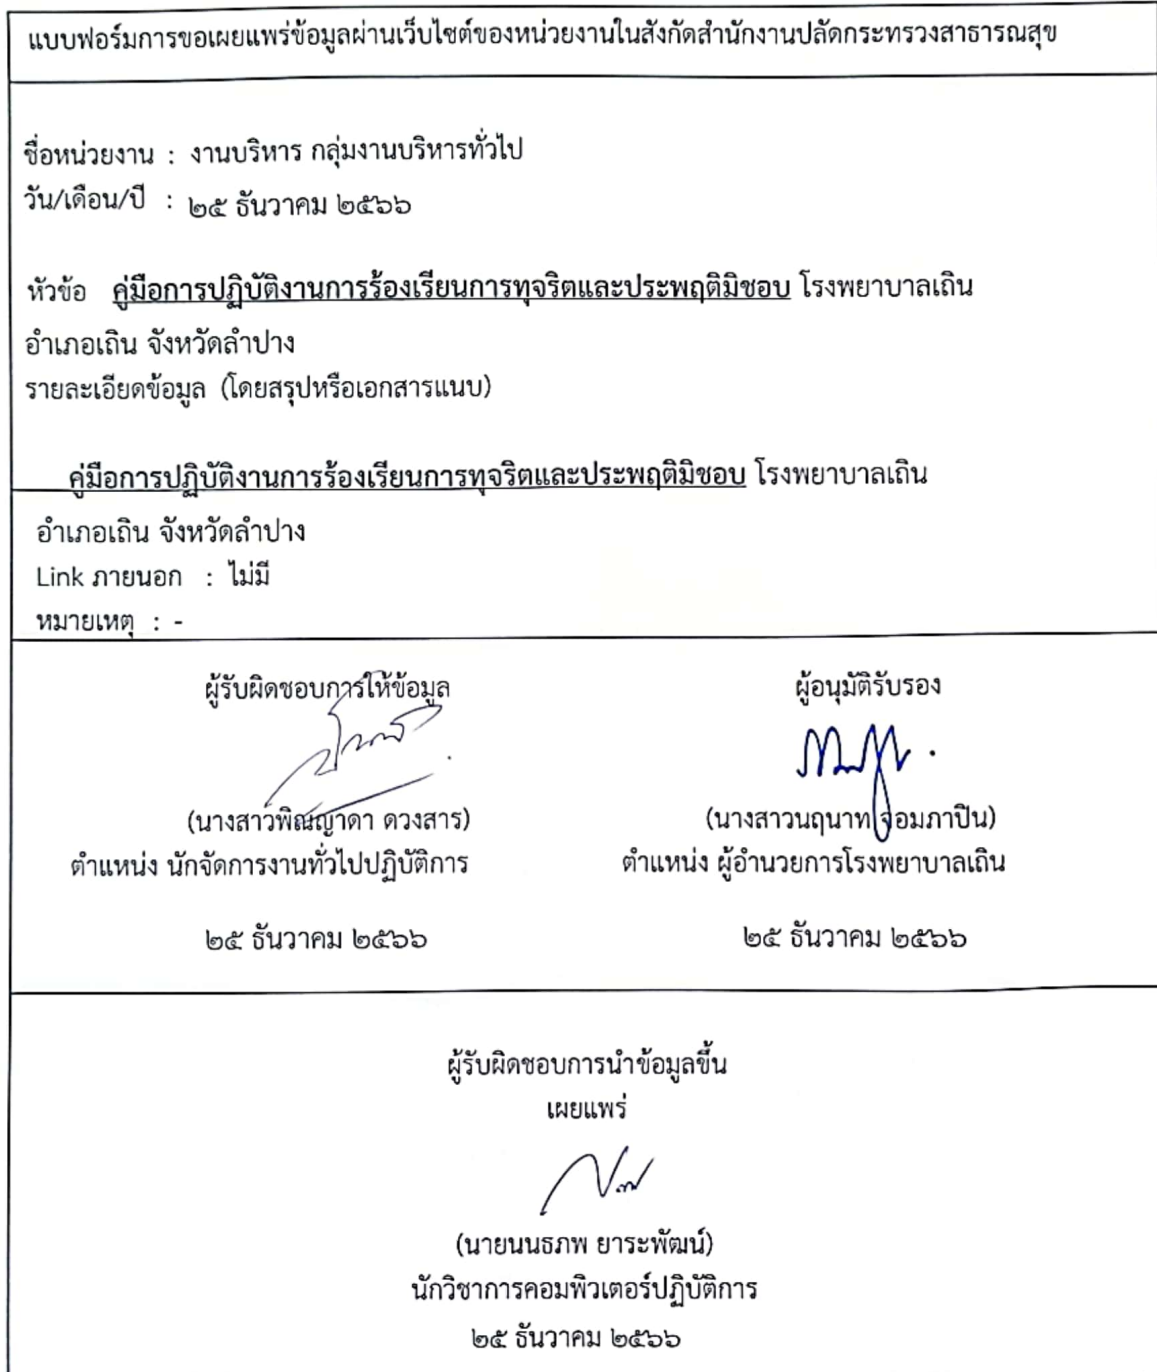 แบบฟอร์มการขอเผยแพร่ข้อมูลผ่านเว็บไซต์ของหน่วยงานในสังกัดสำนักงานปลัดกระทรวงสาธารณสุข
ชื่อหน่วยงาน : งานบริหาร กลุ่มงานบริหารทั่วไป
วัน/เดือน/ปี : ๒๕ ธันวาคม ๒๕๖๖
หัวข้อ คู่มือการปฏิบัติงานการร้องเรียนการทุจริตและประพฤติมิชอบ โรงพยาบาลเถิน
อำเภอเถิน จังหวัดลำปาง
รายละเอียดข้อมูล (โดยสรุปหรือเอกสารแนบ)
คู่มือการปฏิบัติงานการร้องเรียนการทุจริตและประพฤติมิชอบ โรงพยาบาลเถิน
อำเภอเถิน จังหวัดลำปาง
Link ภายนอก : ไม่มี
หมายเหตุ : -
ผู้รับผิดชอบการให้ข้อมูล
(นางสาวพิณญาดา ดวงสาร)
ตำแหน่ง นักจัดการงานทั่วไปปฏิบัติการ
๒๕ ธันวาคม ๒๕๖๖
ผู้อนุมัติรับรอง
(นางสาวนฤนาท จอมภาปิน)
ตำแหน่ง ผู้อำนวยการโรงพยาบาลเถิน
๒๕ ธันวาคม ๒๕๖๖
ผู้รับผิดชอบการนำข้อมูลขึ้น
เผยแพร่
(นายนนธภพ ยาระพัฒน์)
นักวิชาการคอมพิวเตอร์ปฏิบัติการ
๒๕ ธันวาคม ๒๕๖๖